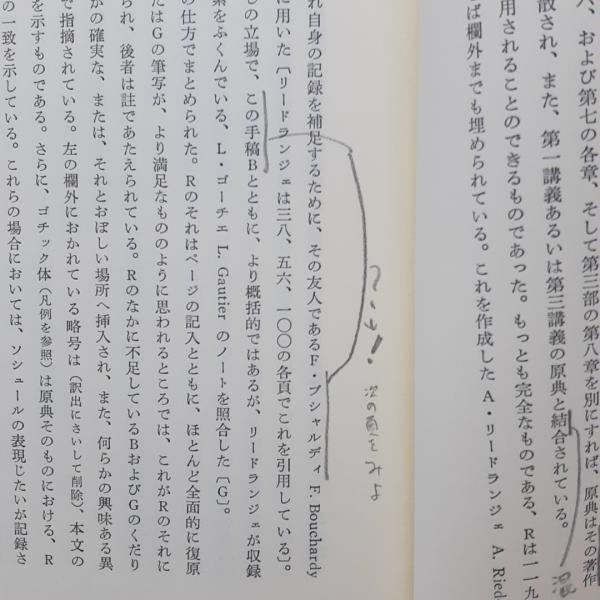 六、および第七の各章、そして第三部の第八章を別にすれば、原典はその著作
散され、また、第一講義あるいは第三講義の原典と結合されている。
用されることのできるものであった。もっとも完全なものである、Rは一一九
ば欄外までも埋められている。これを作成した A・リードランジェ A. Ried
混
次の頁をみよ
れ自身の記録を補足するために、その友人であるF・ブシャルディ F. Bouchardy
に用いた〔リードランジェは三八、五六、一〇〇の各頁でこれを引用している〕。
の立場で、この手稿Bとともに、より概括的ではあるが、リードランジェが収録
素をふくんでいる、L・ゴーチェ L. Gautier のノートを照合した〔G〕。
の仕方でまとめられた。Rのそれはページの記入とともに、ほとんど全面的に復原
たはGの筆写が、より満足なもののように思われるところでは、これがRのそれに
られ、後者は註であたえられている。Rのなかに不足しているBおよびGのくだり
かの確実な、または、それとおぼしい場所へ挿入され、また、何らかの興味ある異
で指摘されている。左の欄外におかれている略号は(訳出にさいして削除)、本文の
を示すものである。さらに、ゴチック体(凡例を参照)は原典そのものにおける、R
の一致を示している。これらの場合においては、ソシュールの表現じたいが記録さ